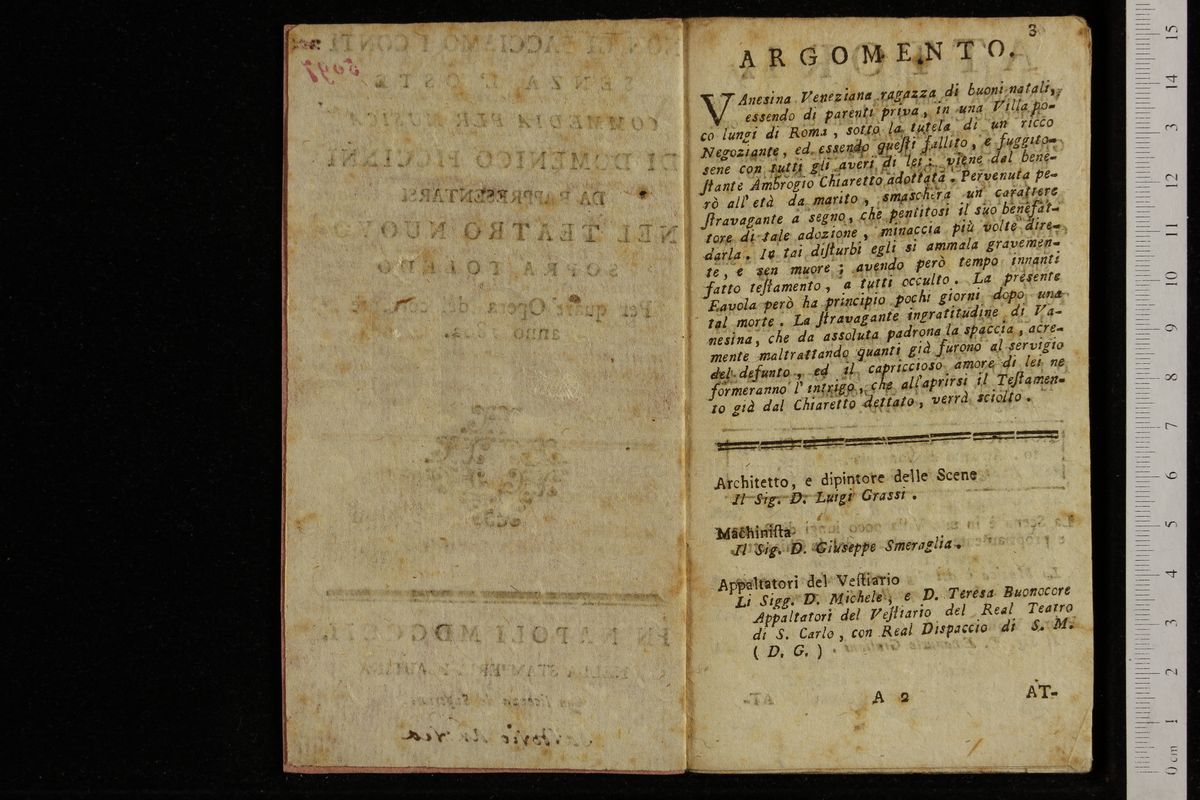 3
ARGOMENTO.
VAnesina Veneziana ragazza di buoni natali,
essendo di parenti priva, in una Villa po-
co lungi di Roma, sotto la tutela di un ricco
Negoziante, ed essendo questi fallito, e fuggito-
sene con tutti gli averi di lei; viene dal bene-
stante Ambrogio Chiaretto adottata. Pervenuta pe-
rò all'età da marito, smaschera un carattere
stravagante a segno, che pentitosi il suo benefat-
tore di tale adozione, minaccia più volte dire-
darla. In tai disturbi egli si ammala gravemen-
te, e sen muore; avendo però tempo innanti
fatto testamento, a tutti occulto. La presente
Favola però ha principio pochi giorni dopo una
tal morte. La stravagante ingratitudine di Va-
nesina, che da assoluta padrona la spaccia, acre-
mente maltrattando quanti già furono al servigio
del defunto, ed il capriccioso amore di lei ne
formeranno l'intrigo, che all'aprirsi il Testamen-
to già dal Chiaretto dettato, verrà sciolto.
Architetto, e dipintore delle Scene
Il Sig. D. Luigi Grassi.
Machinista
Il Sig. D. Giuseppe Smeraglia.
Appaltatori del Vestiario
Li Sigg. D. Michele, e D. Teresa Buonocore
Appaltatori del Vestiario del Real Teatro
di S. Carlo, con Real Dispaccio di S. M.
( D. G. )
A 2 AT-